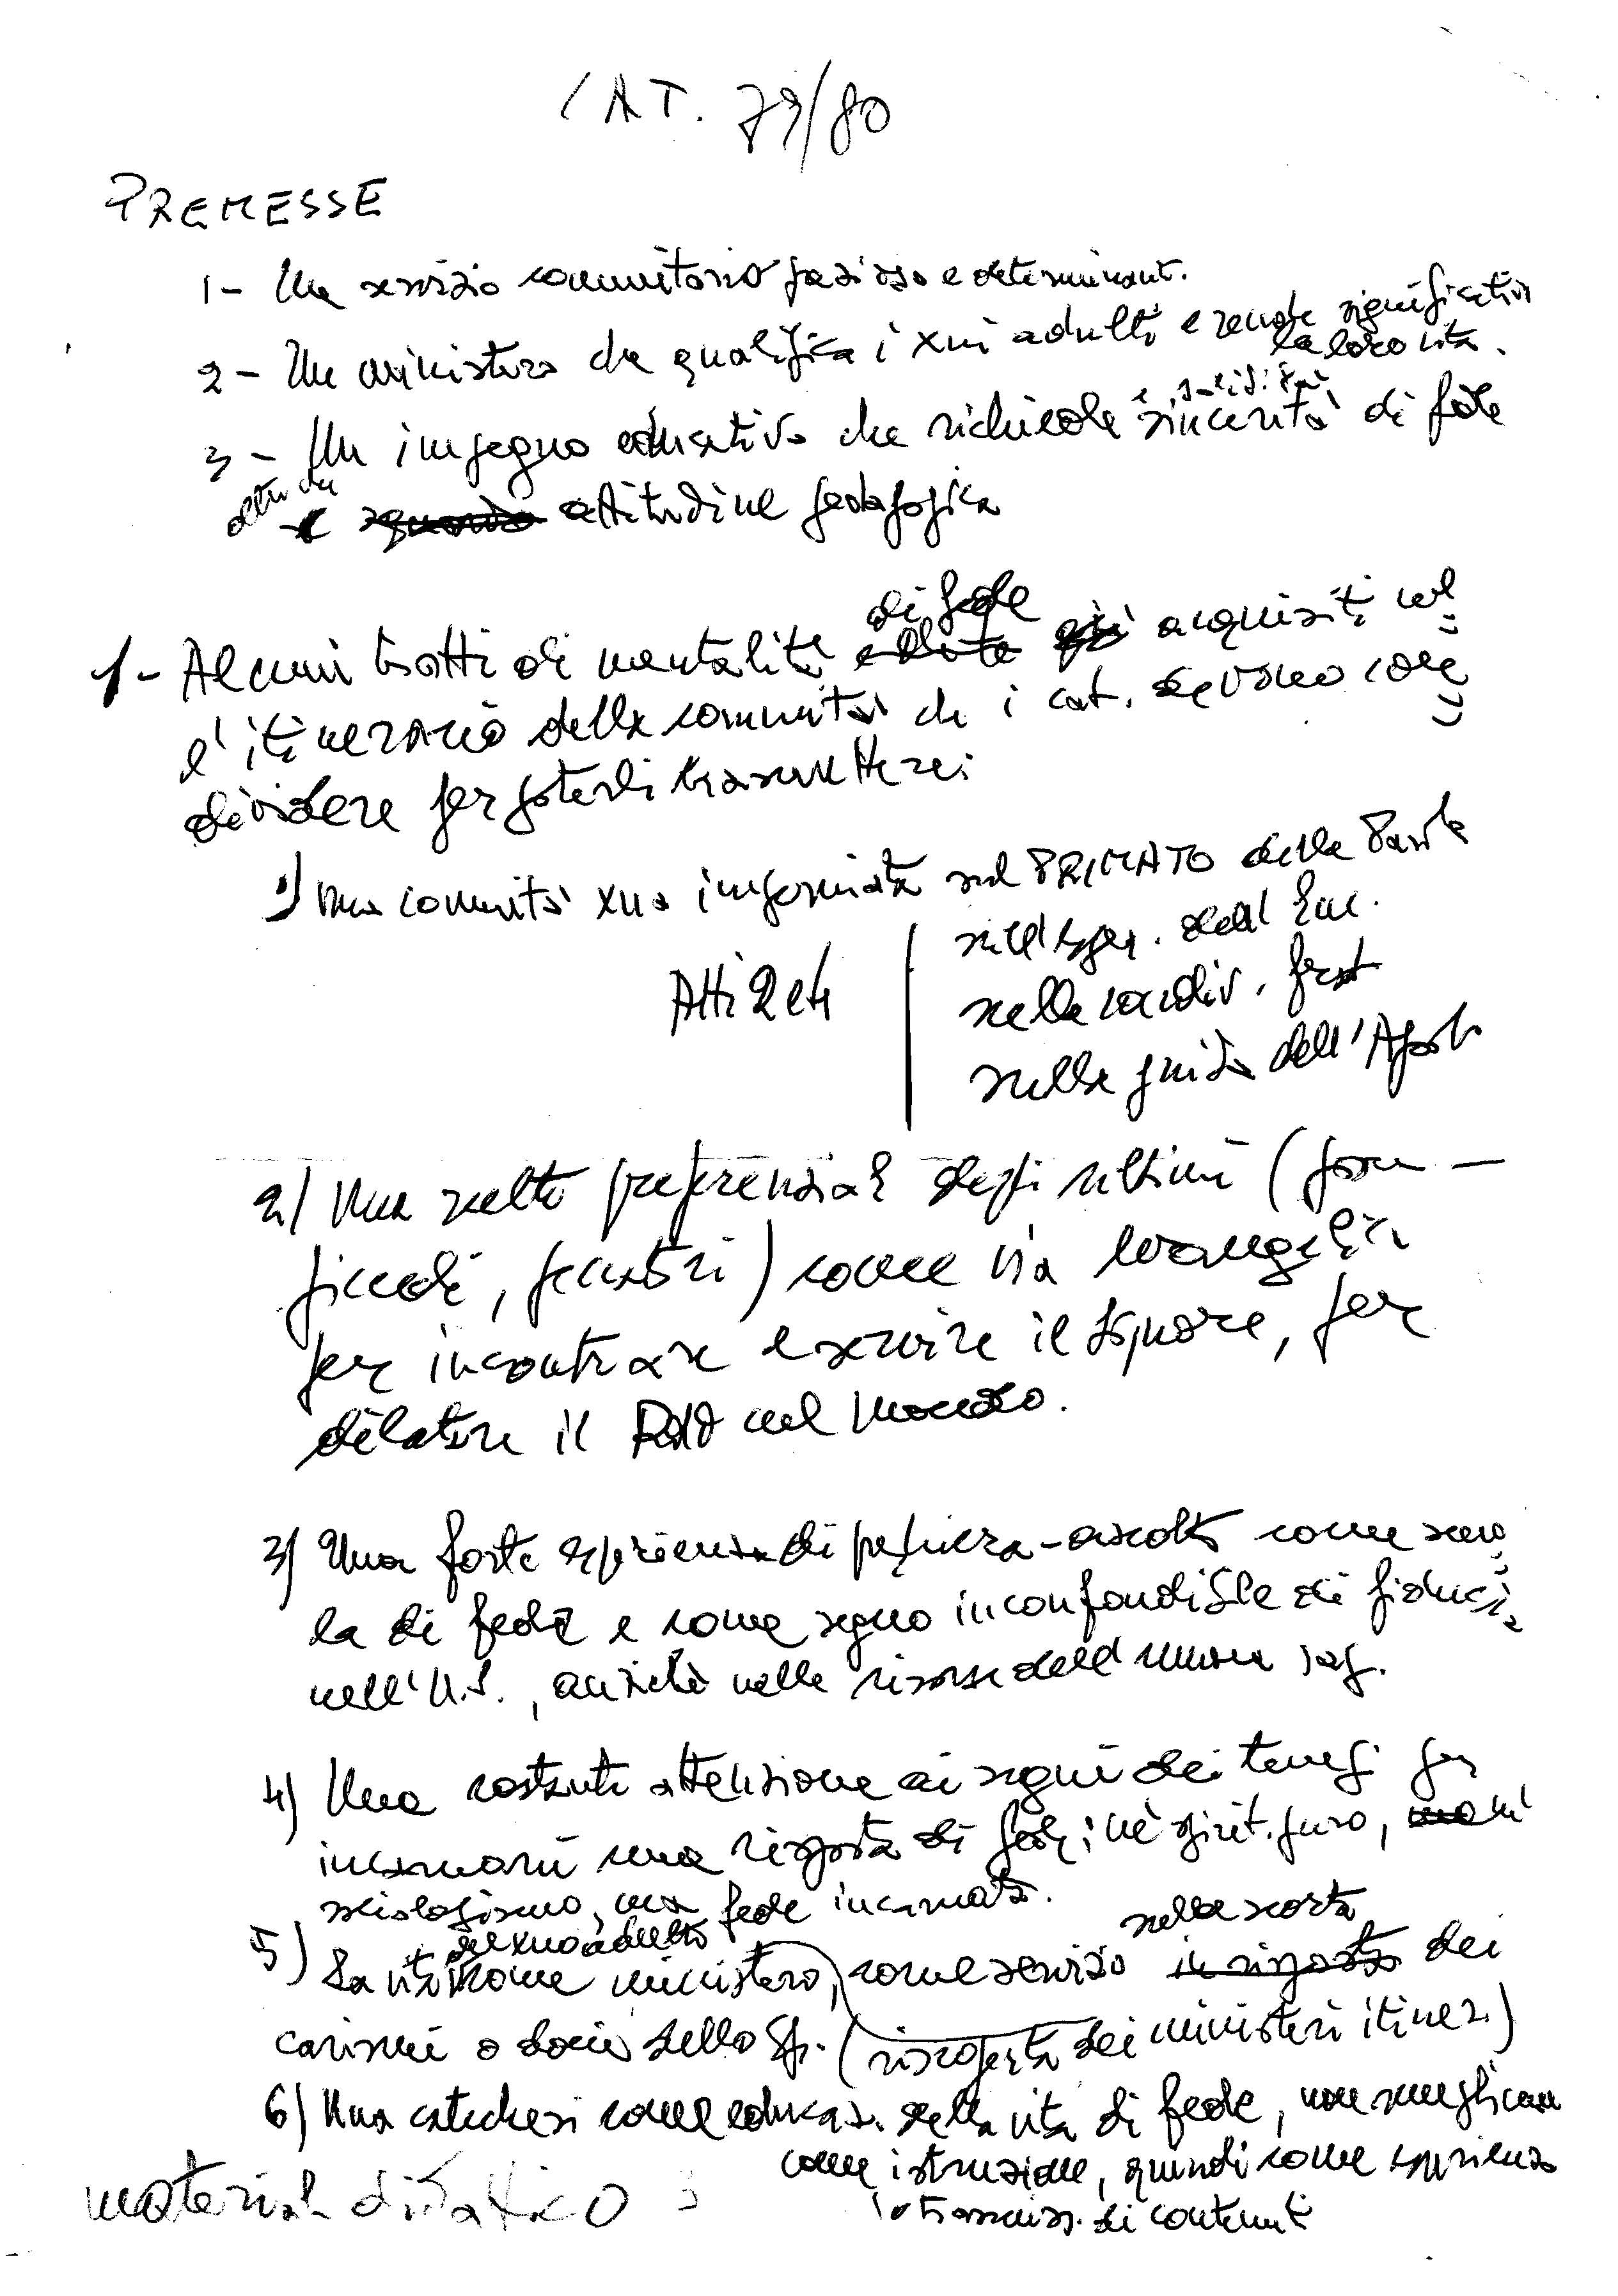 CAT. 79/80
PREMESSE
1- Un servizio comunitario prezioso e determinant.
2- Un ministero che qualifica i xni adulti e rende significativa
la loro vita.
e solidità
3- Un impegno educativo che richiede sincerità di fede
oltre che
attitudine pedagogica
di fede
1- Alcuni tratti di mentalità acquisiti col
l'itinerario della comunità che i cat. devono con
dividere per poterli trasmettere:
1) una comunità xna imperniata sul PRIMATO della Parola
sull'esper. dell'Euc.
Atti 2 nella condiv. frat
nella guida dell'Apost
2) Una scelta preferenziale degli ultimi (poveri -
piccoli, peccatori) come via evangelica
per incontrare e servire il Signore, per
dilatare il RdD nel mondo.
3) Una forte esperienza di preghiera-ascolto come scuo
la di fede e come segno inconfondibile di fiducia
nell'U.S., anziché nelle risorse dell'umana sap.
4) Una costante attenzione ai segni dei tempi per
incarnarvi una risposta di fede; né spirit. puro, né
sociologismo, ma fede incarnata.
del xno adulto nella scorta
5) La vita come ministero, come servizio in risposta dei
carismi o doni dello Sp. (riscoperta dei ministeri itiner.)
6) Una catechesi come educaz. della vita di fede, non semplicem
come istruzione, quindi come esperienza
trasmiss. di contenuti
material didattico :